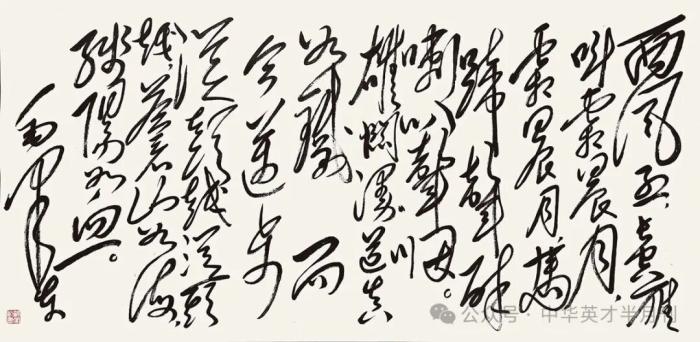 西风烈,长空雁
叫霜晨月,
霜晨月,馬
蹄聲碎
喇叭聲咽。
雄關漫道真
如鐵 而
今迈步
从頭越从頭
越,蒼山如海,
残陽如血。
毛泽东
公众号·中华英才半月刊